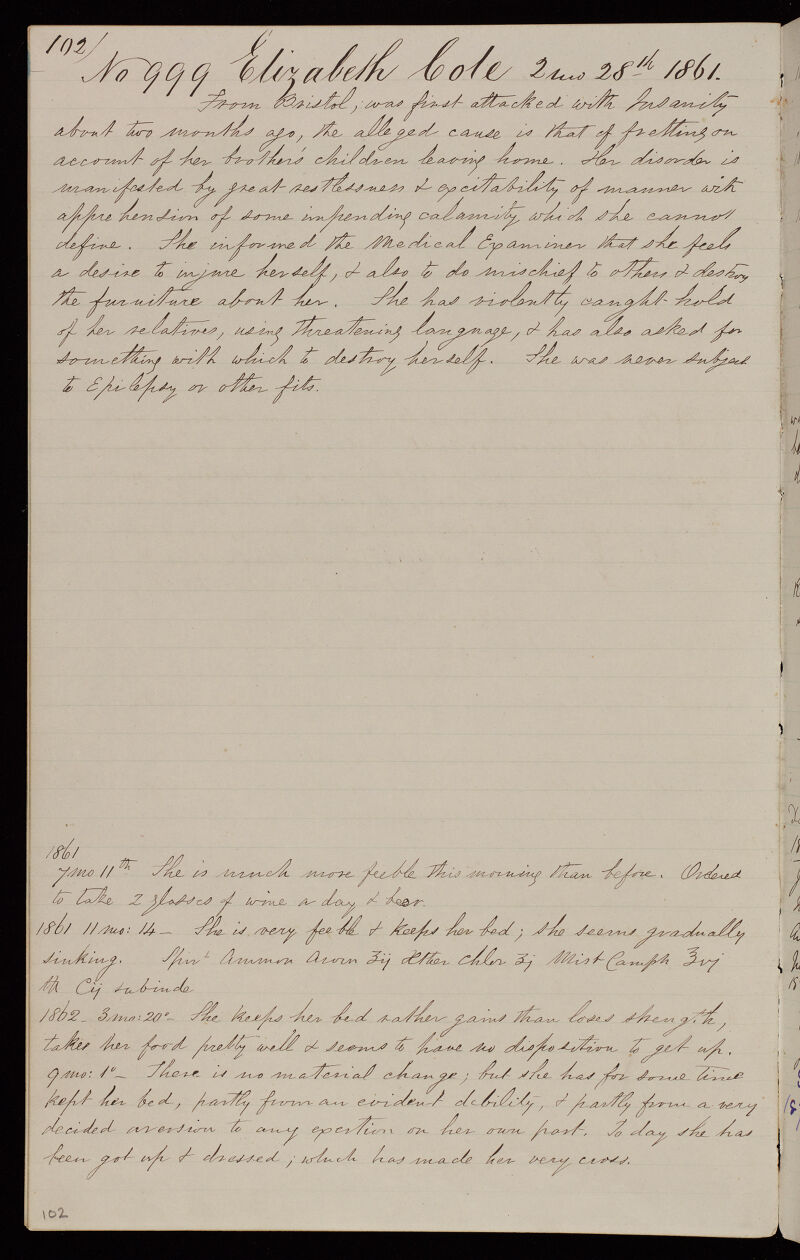 102/
No 999 Elizabeth Cole 2 mo 28th 1861.
From Bristol, was first attacked with Insanity
about two months ago, the alleged cause is that of fretting on
account of her brother's children leaving home. Her disorder is
manifested by great restlessness & excitability of manner with
apprehension of some impending calamity which she cannot
define. She informed the Medical Examiner that she feels
a desire to injure herself, & also to do mischief to others & destroy
the furniture about her. She has violently caught hold
of her relatives, using threatening language, & has also asked for
something with which to destroy herself. She was never subject
to Epilepsy or other fits.
1861
7 mo 11th She is much more feeble this morning than before. Ordered
to take 2 glasses of wine a day & beer.
1861 11 mo: 14 - She is very feeble & keeps her bed; she seems gradually
sinking. Spirt Ammon Arom ʒij Æther Chlor ʒj Mist Camph ℥vj
Cij subinde
1862 - 3 mo: 20° - She keeps her bed rather gains than loses strength,
takes her food pretty well & seems to have no disposition to get up.
9 mo: 1° - There is no material change; but she has for some time
kept her bed, partly from an evident debility, & partly from a very
decided aversion to any exertion on her own part. To day she has
been got up & dressed; which has made her very cross.
102